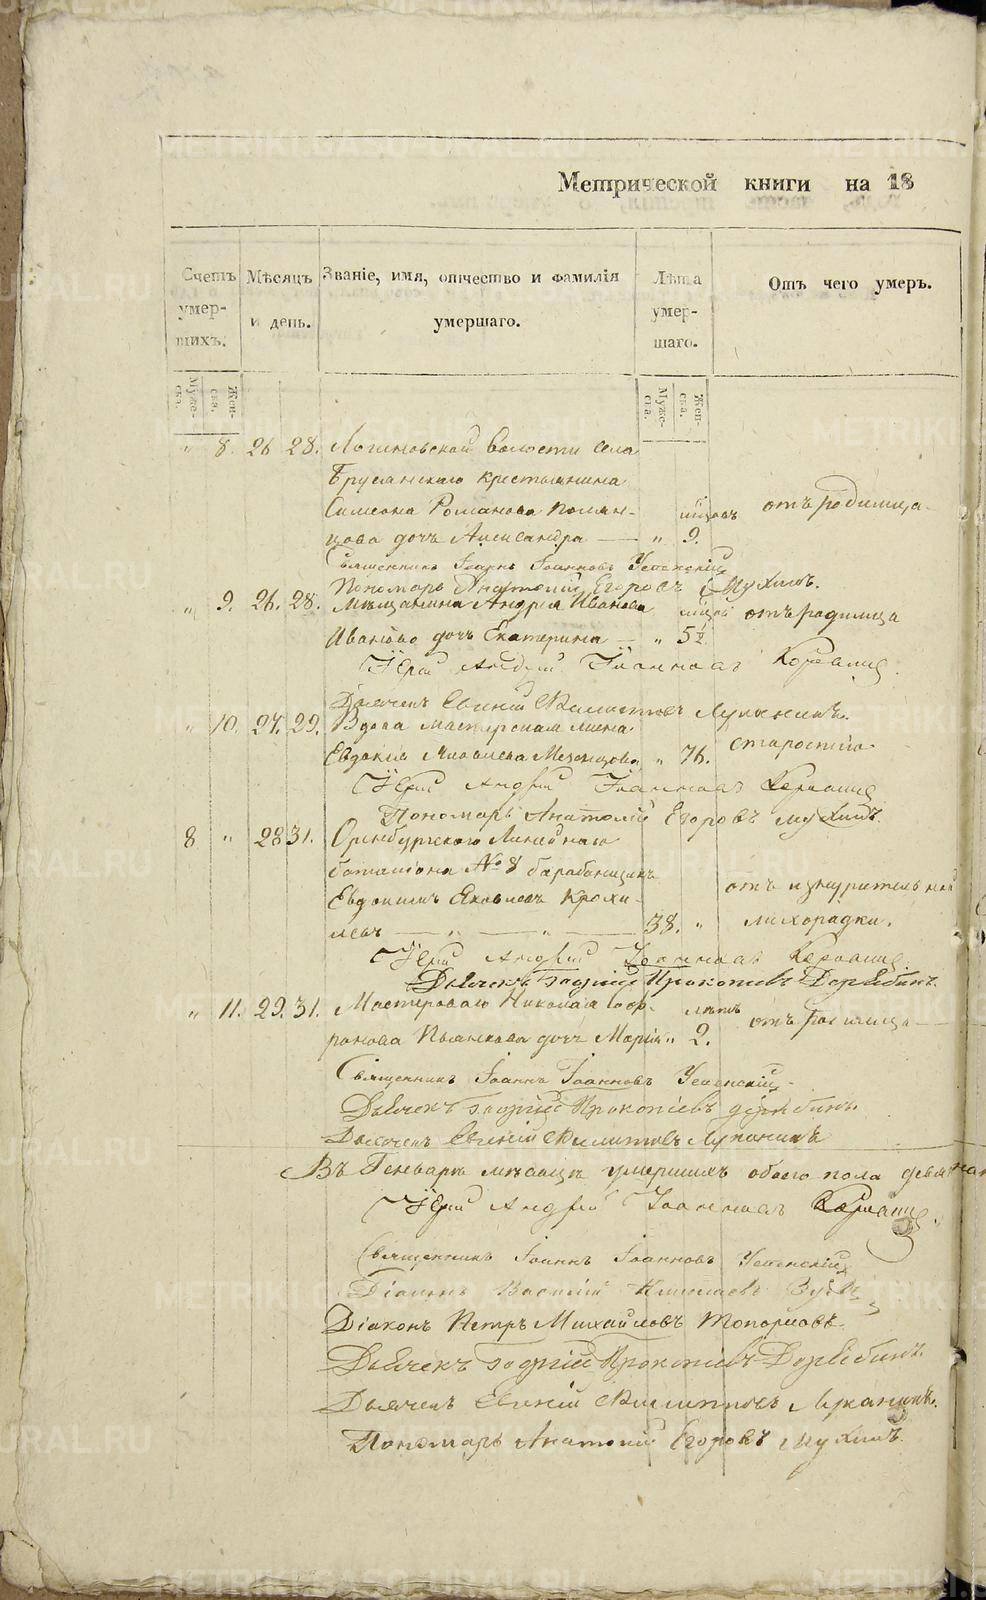 Метрической книги на 18
Счетъ умер-шихъ.
Мѣсяцъ и день.
Званіе, имя, отчество и фамилія умершаго.
Лѣта умер-шаго.
Отъ чего умеръ.
Муже-ска.
Жен-ска.
Муже-ска.
Жен-ска.
" 8. 26 28. Логиновской волости села
Брусянскаго крестьянина
Симеона Романова Помян- отъ родимца
цова дочь Александра — " 9.
Священникъ Іоаннъ Іоанновъ Успенскій
Пономарь Анатолій Егоровъ Мухинъ.
" 9. 26. 28. Мѣщанина Андрея Иванова отъ родимца
Иванова дочь Екатерина — " 5½
Іерей Андрей Іоанновъ
Дьячекъ Евгеній Филиповъ Луканинъ.
" 10. 27. 29. Вдова мастерская жена старостію
Евдокія Яковлева " 76.
Іерей Андрей Іоанновъ
Пономарь Анатолій Егоровъ Мухинъ.
8 " 28 31. Оренбургскаго Линейнаго
баталіона № 8 барабанщикъ отъ изнурительной
Евдокимъ Яковлевъ Крохи-
левъ — " — " — 38. " лихорадки.
Іерей Андрей Іоанновъ
Дьячекъ Георгій Прокопіевъ Дерябинъ.
" 11. 29. 31. Мастероваго Николая Софо- лѣтъ отъ родимца
ронова Пьянкова дочь Марія " 2.
Священникъ Іоаннъ Іоанновъ Успенскій
Дьячекъ Георгій Прокопіевъ Дерябинъ.
Дьячекъ Евгеній Филиповъ Луканинъ
Въ Генварѣ мѣсяцѣ умершихъ обоего пола
Іерей Андрей Іоанновъ
Священникъ Іоаннъ Іоанновъ Успенскій
Діаконъ Василій
Діаконъ Петръ Михайловъ Топорковъ.
Дьячекъ Георгій Прокопіевъ Дерябинъ.
Дьячекъ Евгеній Филиповъ Луканинъ.
Пономарь Анатолій Егоровъ Мухинъ.
METRIKI.GASO-URAL.RU